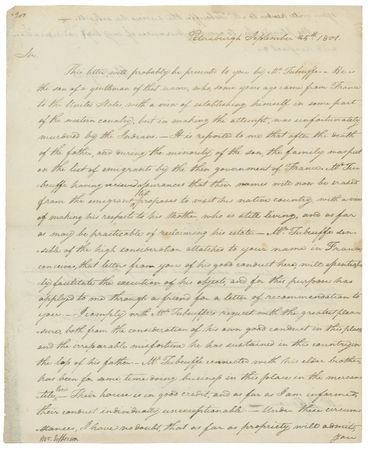 Petersburgh September 24th 1801.
Sir
This letter will probably be presented to you by Mr. Tubeuffe. He is
the son of a gentleman of that name, who some years ago came from France
to the United States with a view of establishing himself in some part
of the western country, but in making the attempt, was unfortunately
murdered by the Indians. It is reported to me that after the death
of the father, and during the minority of the son, the family was put
on the list of emigrants by the then government of France. Mr. Tu-
beuffe having received assurances that their names will now be erased
from the emigrant list, proposes to visit his native country, with a view
of making his respects to his Mother, who is still living, and as far
as may be practicable of reclaiming his estate. Mr. Tubeuffe sen-
sible of the high consideration attached to your name in France
conceives, that a letter from you of his good conduct here, will essential-
ly facilitate the execution of his objects, and for this purpose has
applied to me through a friend for a letter of recommendation to
you. I comply with Mr. Tubeuffe's request with the greatest plea-
sure, both from the consideration of his own good conduct in this place,
and the irreparable misfortune he has sustained in this country in
the loss of his father. Mr. Tubeuffe connected with his elder brother,
has been for some time doing business in this place in the mercan-
tile line. Their house is in good credit, and as far as I am informed,
their conduct individually unexceptionable. Under these circum-
stances, I have no doubt, that as far as propriety will admit,
Mr. Jefferson
you